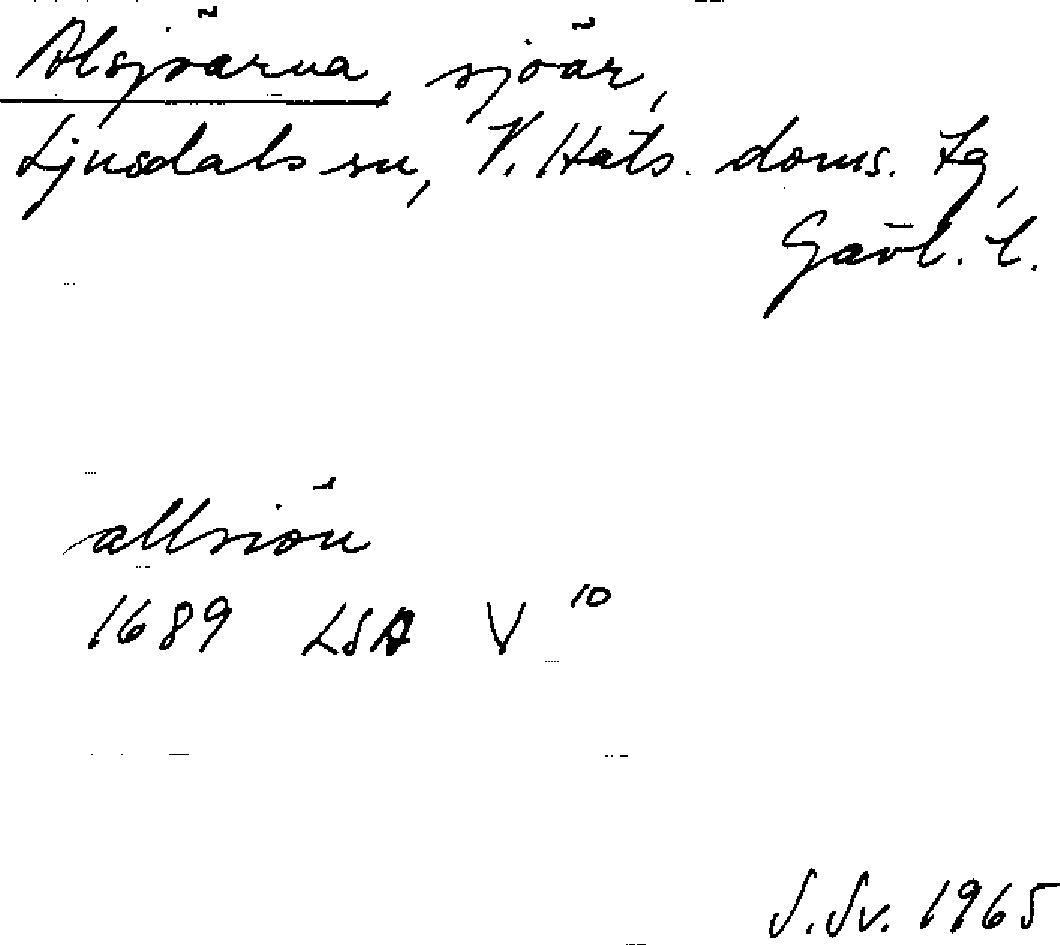 Alsjöarna, sjöar,
Ljusdals sn, V. Häls. doms. tg,
Gävl. l.
allsiön
1689 LSA V 10
S. Sv. 1965